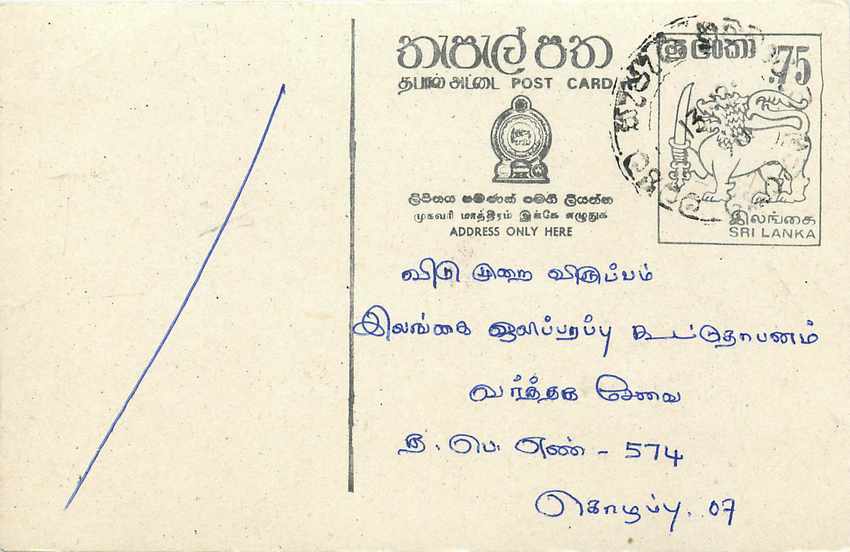 තැපැල් පත
தபால் அட்டை POST CARD
ශ්‍රී ලංකා 75
இலங்கை
SRI LANKA
ලිපිනය පමණක් මෙහි ලියන්න
முகவரி மாத்திரம் இங்கே எழுதுக
ADDRESS ONLY HERE
விடுமுறை விருப்பம்
இலங்கை ஒலிப்பரப்பு கூட்டுதாபனம்
வர்த்தக சேவை
த. பெ. எண் - 574
கொழப்பு. 07